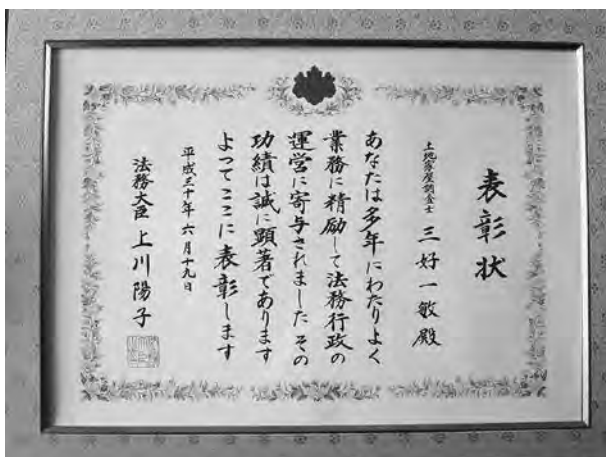 表彰状
土地家屋調査士 三好一敏殿
あなたは多年にわたりよく
業務に精励して法務行政の
運営に寄与されました その
功績は誠に顕著であります
よってここに表彰します
平成三十年六月十九日
法務大臣 上川陽子